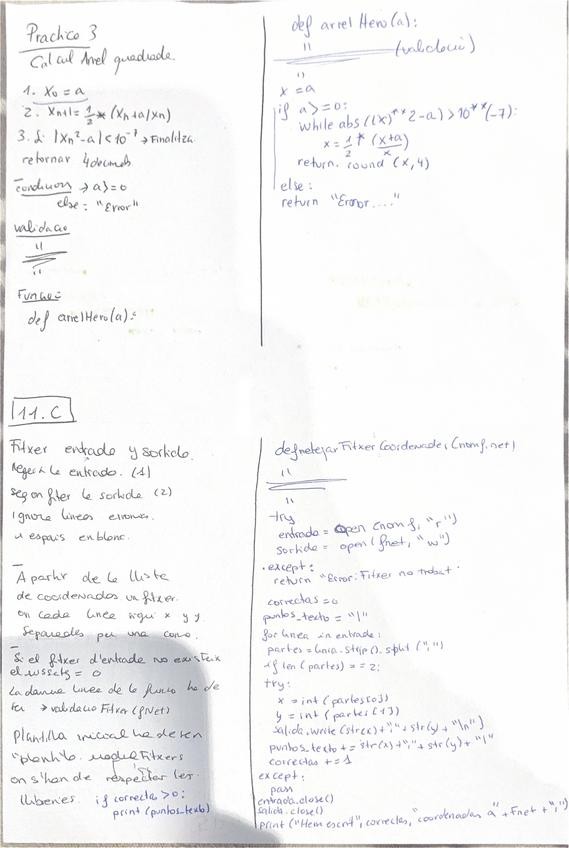 Practica 3
Calcul Arrel quadrada.
1. X0 = a
2. Xn+1 = 1/2 * (Xn + a/xn)
3. Si |Xn²-a| < 10⁻⁷ → Finalitza
retornar 4 decimals
condicions → a>=0
else: "Error"
validacio
"
"
Funcio:
def arrelHero(a):
def arrel Hero(a):
"
(validacio)
"
x = a
if a>=0:
while abs((x)**2-a) > 10**(-7):
x = 1/2 * (x+a)/x
return. round (x,4)
else:
return "Error...."
11.C
Fitxer entrada y sortida.
la entrada. (1)
segon fitxer la sortida (2)
ignora linees
espais en blanc.
A partir de la llista
de coordenades un fitxer.
on cada linea x y y.
Separades per una coma.
Si el fitxer d'entrada no existeix
el = 0
La darrera linea de la funcio ha de
fer → validacio Fitxer (fNet)
Plantilla inicial ha de ser
"plantilla. Fitxers
on s'han de respectar les
llibreries. if correcta >0:
print (puntos_texto)
def netejar Fitxer Coordenades (nomf, net)
"
"
try
entrada = open (nomf, "r")
sortida = open (fnet, "w")
except:
return "Error: Fitxer no trobat.
correctas = 0
puntos_texto = "|"
for linea in entrada:
partes = linia.strip(). split (",")
if len (partes) == 2;
try:
x = int (partes[0])
y = int (partes [1])
salida. write (str(x)+","+ str(y + "\n")
puntos_texto += str(x)+","+ str(y) + "|"
correctas += 1
except:
pass
entrada.close()
salida. close()
print ("Hem escrit", correctas, "coordenadas a" + Fnet + ",")